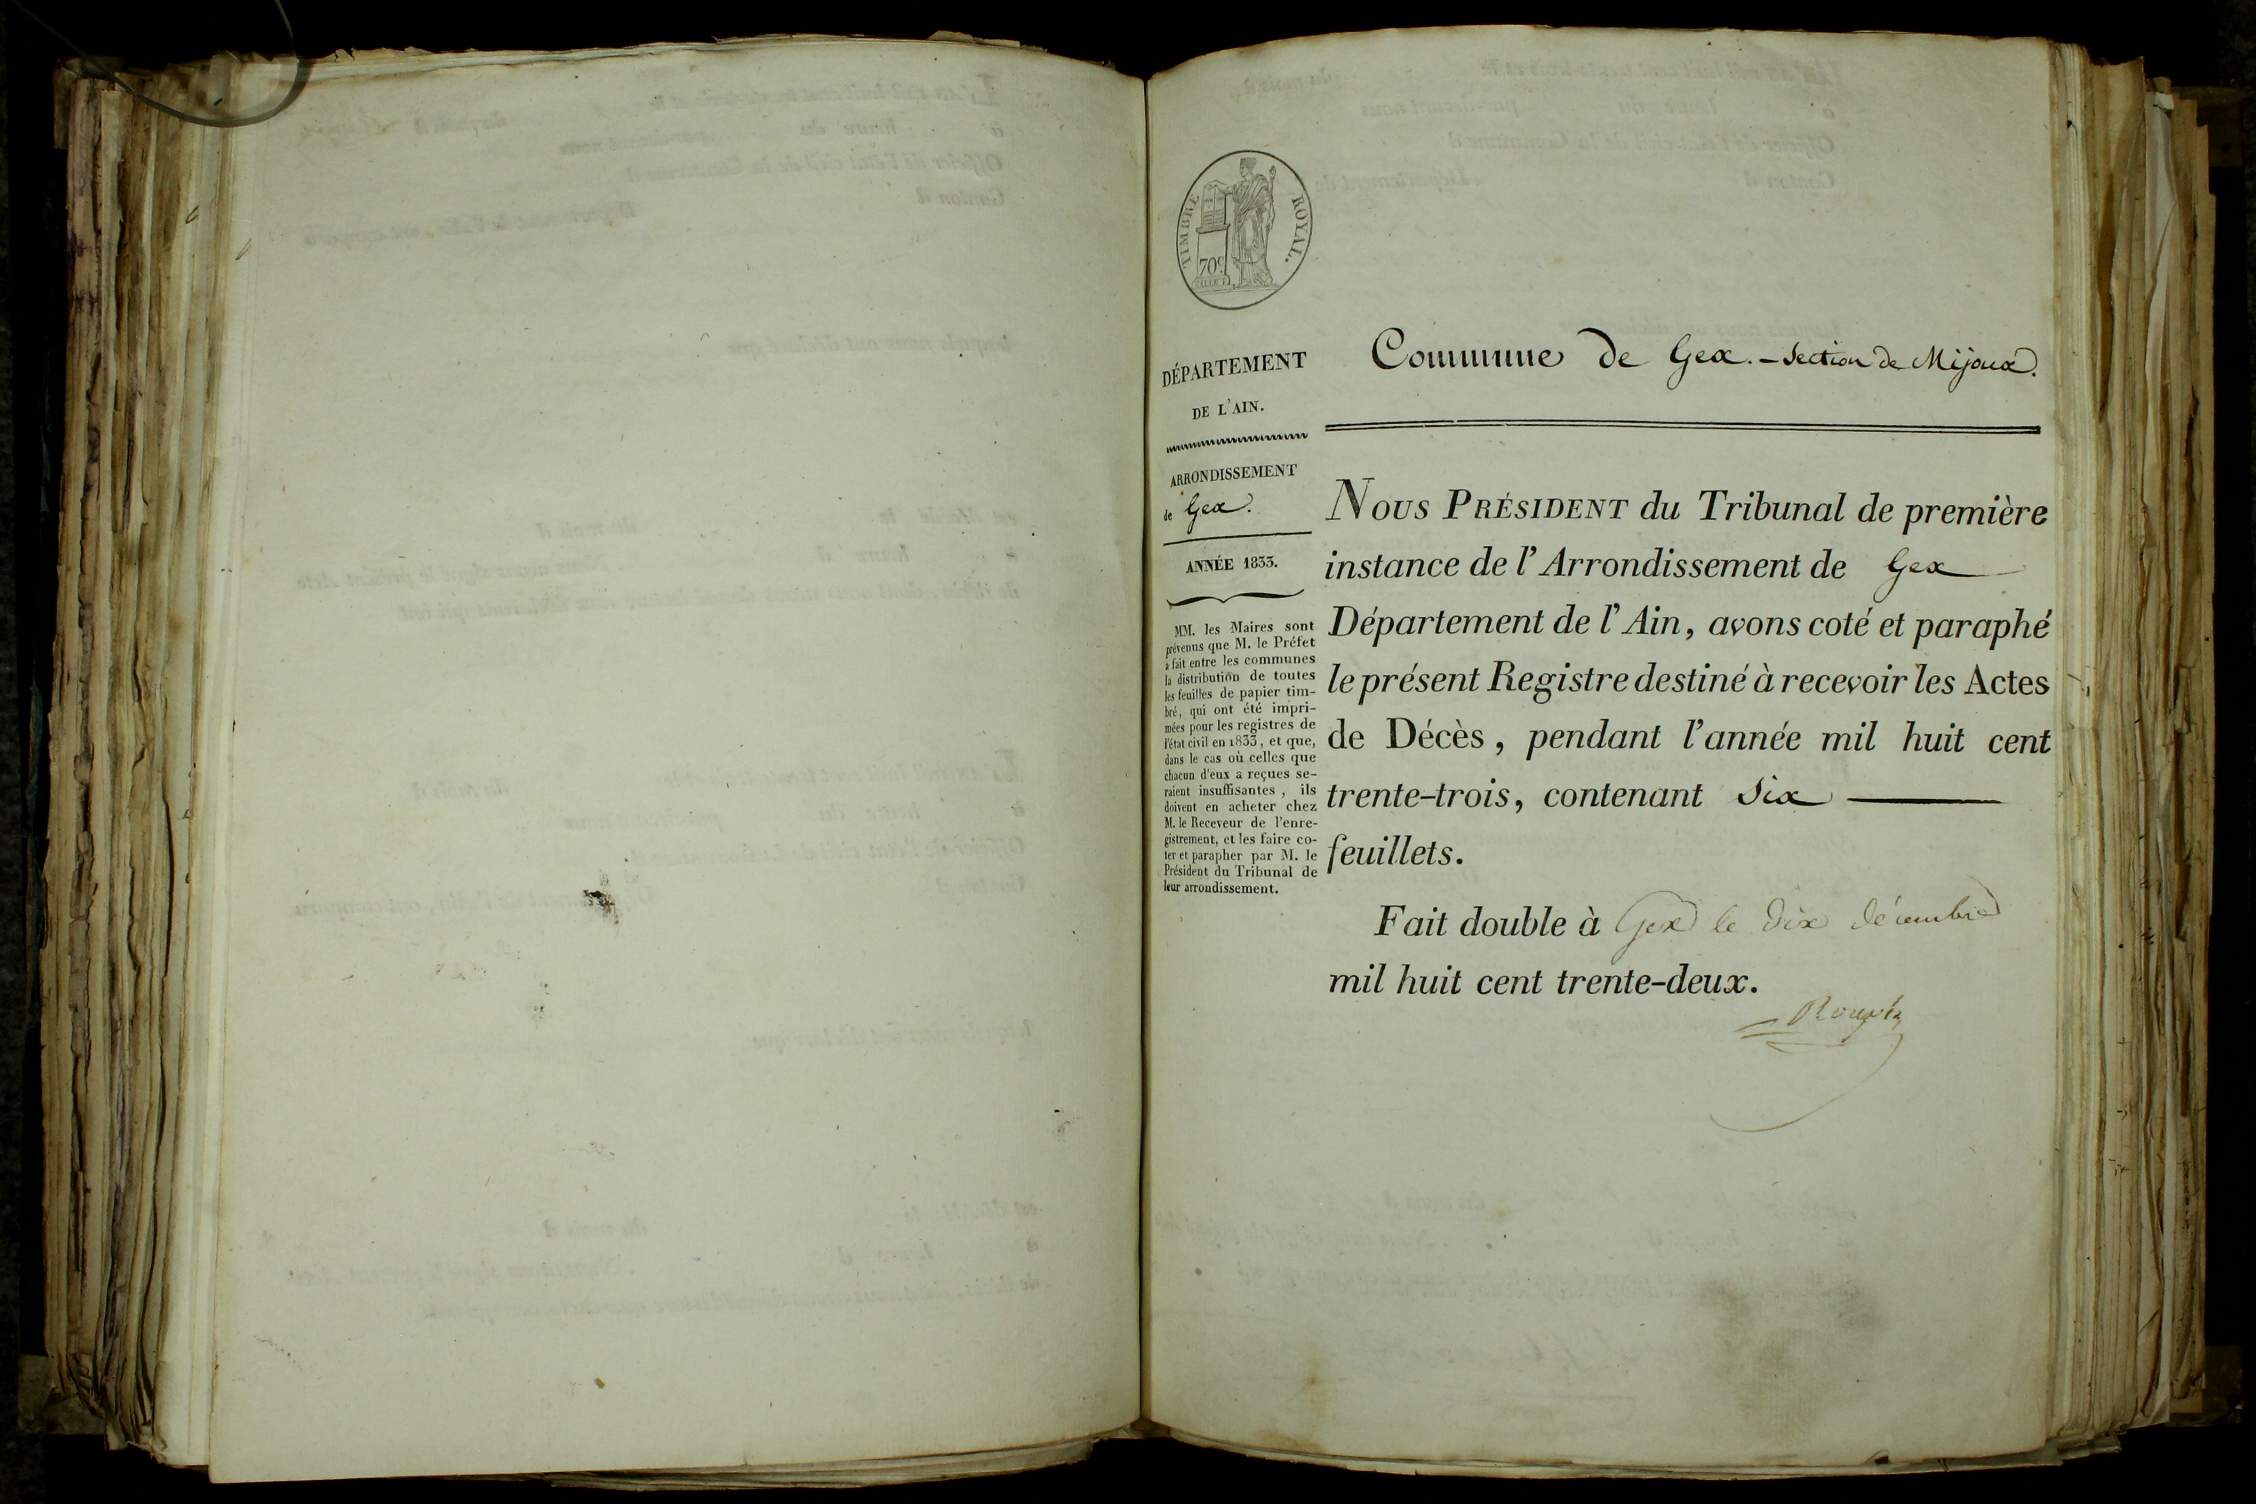 TIMBRE ROYAL.
70c
Commune de Gex. - Section de Mijoux.
DÉPARTEMENT
DE L'AIN.
ARRONDISSEMENT
de Gex.
ANNÉE 1833.
MM. les Maires sont
prévenus que M. le Préfet
a fait entre les communes
la distribution de toutes
les feuilles de papier tim-
bré, qui ont été impri-
mées pour les registres de
l'état civil en 1833, et que,
dans le cas où celles que
chacun d'eux a reçues se-
raient insuffisantes, ils
doivent en acheter chez
M. le Receveur de l'enre-
gistrement, et les faire co-
ter et parapher par M. le
Président du Tribunal de
leur arrondissement.
NOUS PRÉSIDENT du Tribunal de première
instance de l'Arrondissement de Gex
Département de l'Ain, avons coté et paraphé
le présent Registre destiné à recevoir les Actes
de Décès, pendant l'année mil huit cent
trente-trois, contenant six
feuillets.
Fait double à Gex le dix décembre
mil huit cent trente-deux.